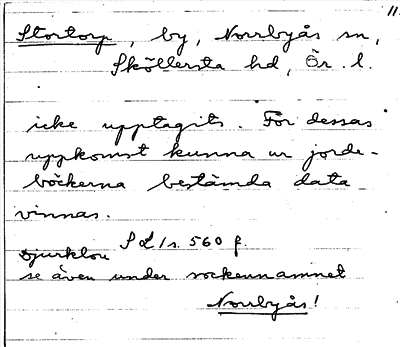 11
Stortorp, by, Norrbyås sn,
Sköllersta hd, Ör. l.
icke upptagits. För dessas
uppkomst kunna ur jorde-
böckerna bestämda data
vinnas.
Djurklou SL 1 s. 560 f.
se även under sockennamnet
Norrbyås!